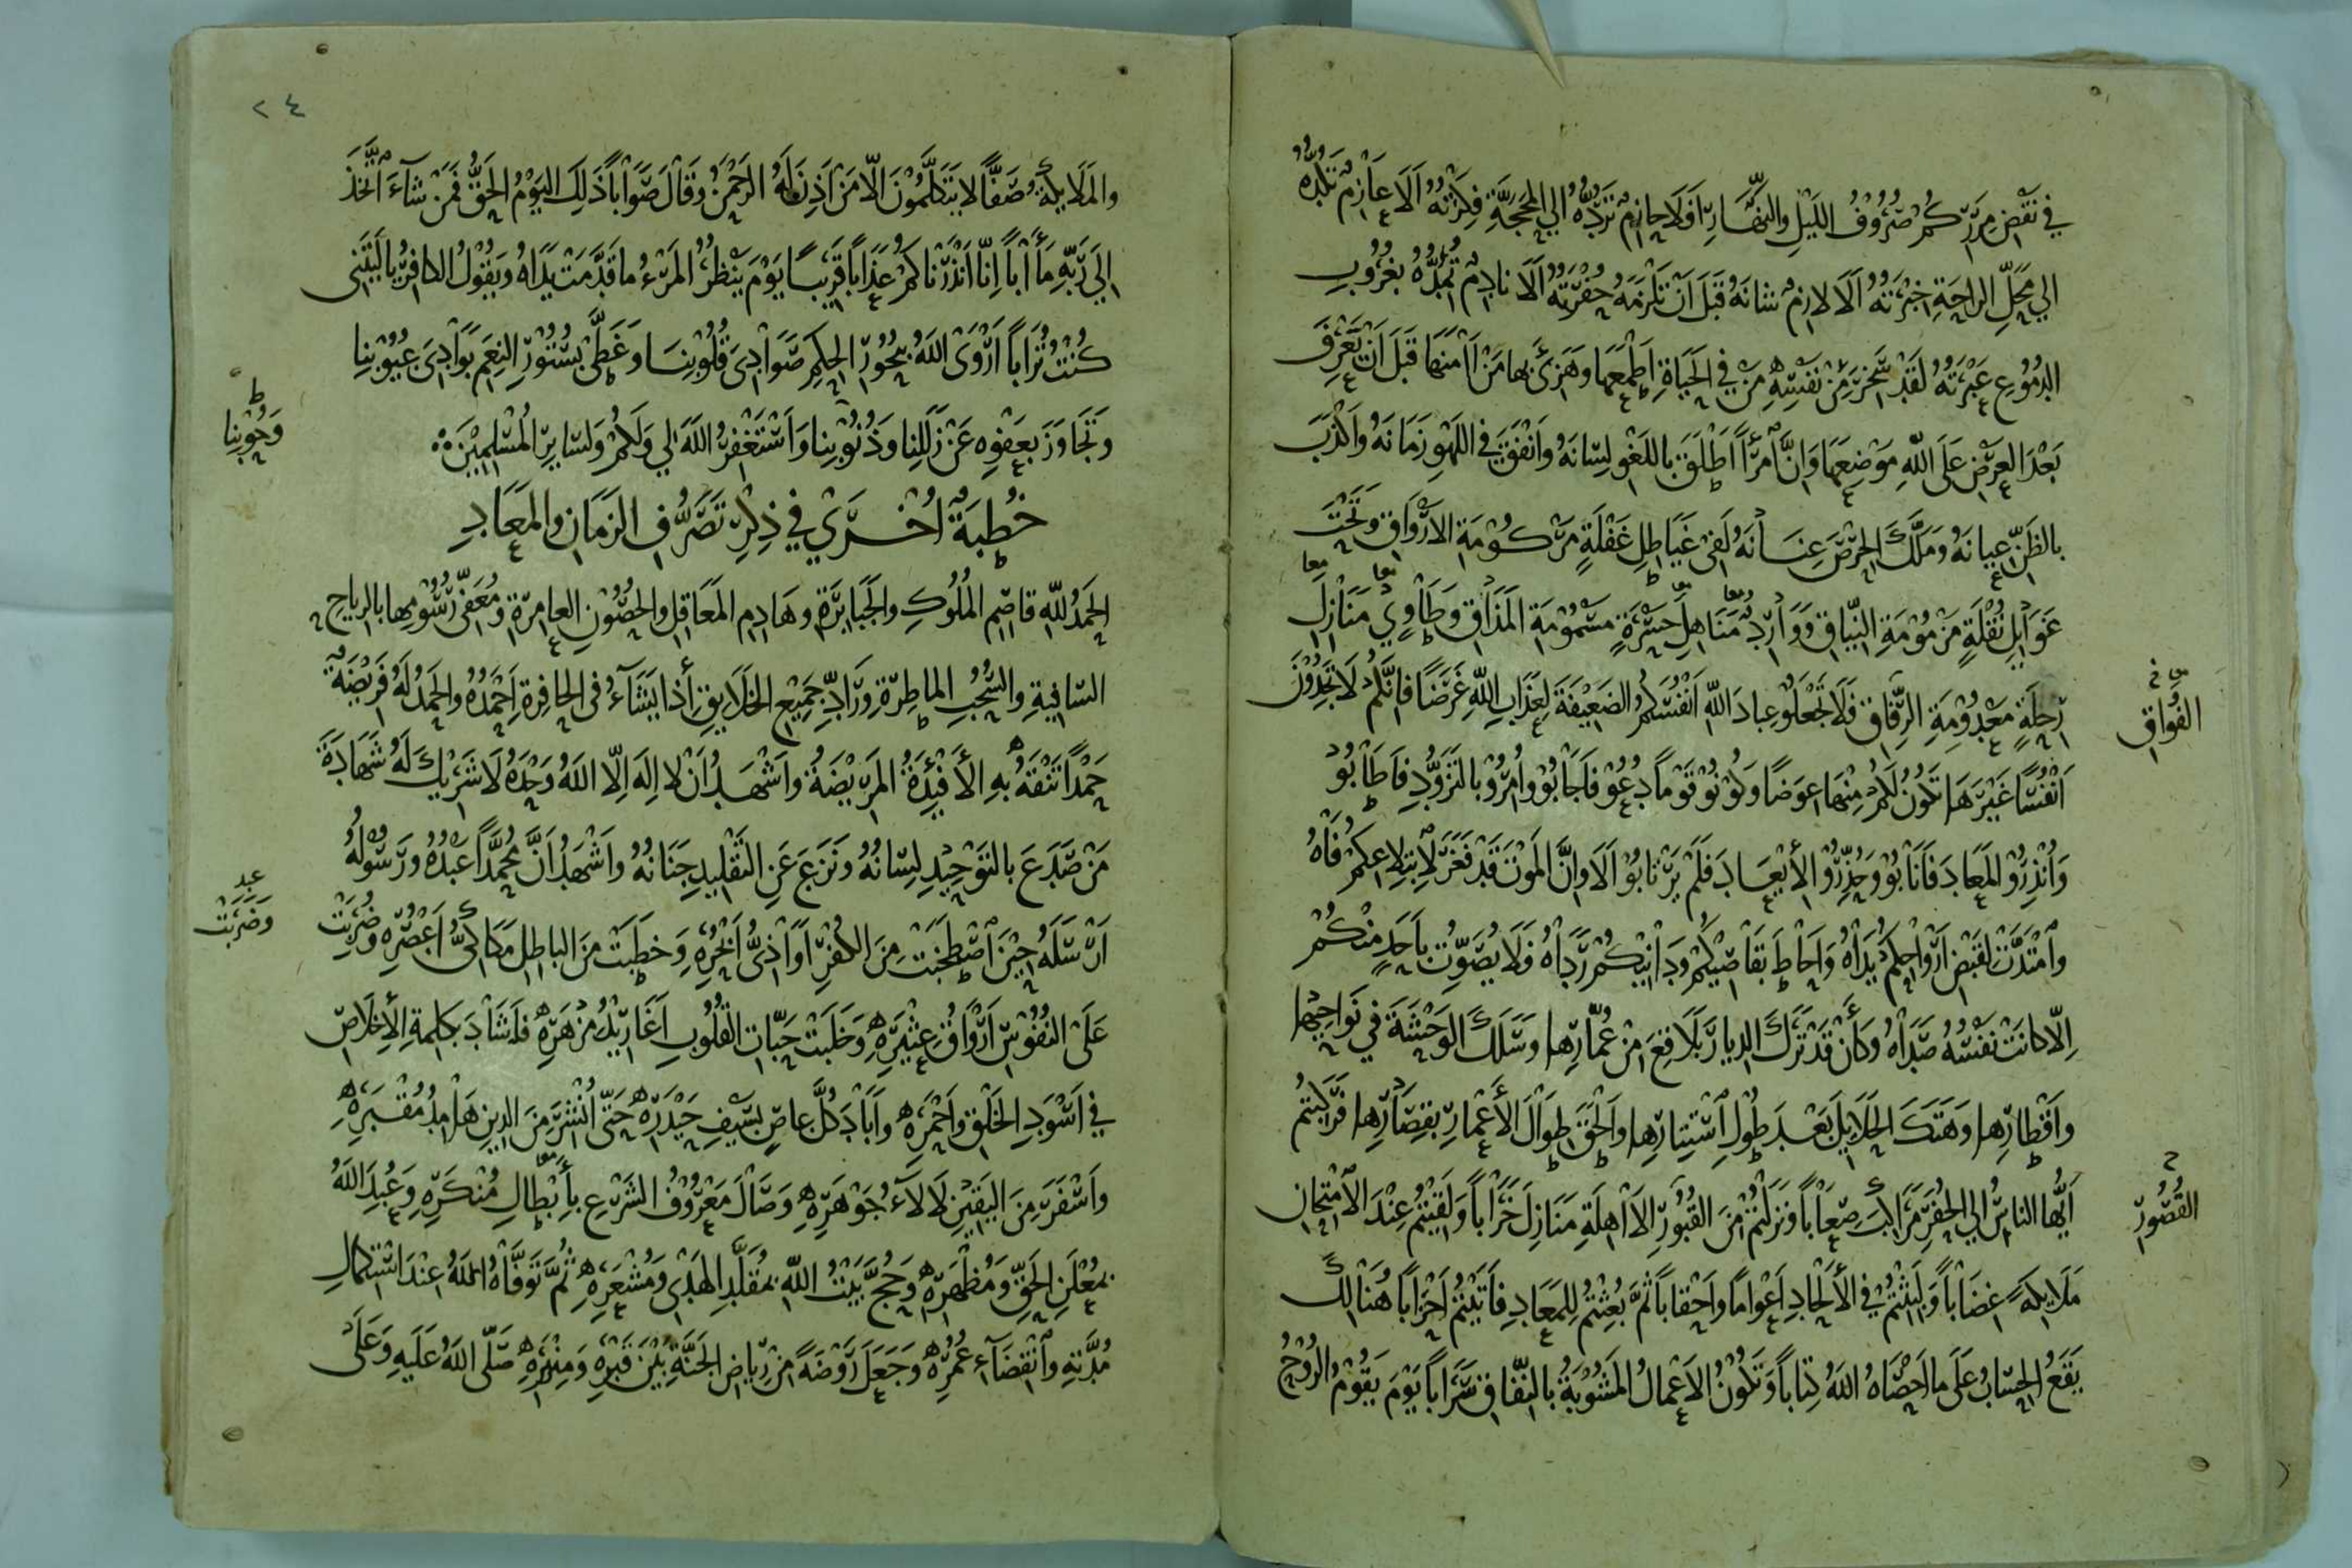 في نقض مرركم صروف الليل والنهار افلا حازم ترده الي المحجة فكرته الا عازم تلده
الي محل الراحة خبرته الا لازم شانه قبل ان تلزمه حفرته الا نادم تمده بغروب
الدموع عبرته لقد سخر من نفسه من في الحياة اطمعها وهزئ بها من امنها قبل ان تعرف
بعد العرض على الله موضعها وان امرأ اطلق باللغو لسانه وانفق في اللهو زمانه واكذب
بالظن عيانه وملك الحرص عنانه لفي غياطل غفلة مركومة الارواق وتحت
غوايل نقلة مزمومة النياق ووارد مناهل حسرة مسمومة المذاق وطاوي منازل
رحلة معدومة الرفاق فلا تجعلو عباد الله انفسكم الضعيفة لعذاب الله غرضا فانكم لا تجدون
الفواق
انفسا غيرها تكون لكم منها عوضا وكونو قوما دعو فاجابو وامرو بالتزود فاطابو
وانذرو المعاد فانابو وحذرو الابعاد فلم يرتابو الا وان الموت قد فغر لابتلاعكم فاه
وامتدت لقبض ارواحكم يداه واحاط بقاصيكم ودانيكم رداه فلا يصوت باحد منكم
الا كانت نفسه صداه وكان قد ترك الديار بلاقع من عمارها وسلك الوحشة في نواحيها
واقطارها وهتك الحلايل بعد طول استتارها والحق طوال الأعمار بقصارها فركبتم
ايها الناس الي الحفر مراكب صعابا ونزلتم من القبور الاهلة منازل خرابا ولقيتم عند الامتحان
القصور
ملايكة غضابا ولبثتم في الألحاد اعواما واحقابا ثم بعثتم للمعاد فاتيتم احزابا هنالك
يقع الحساب على ما احصاه الله كتابا وتكون الاعمال المشوبة بالنفاق سرابا يوم يقوم الروح
٢٤
والملايكة صفا لا يتكلمون الا من اذن له الرحمن وقال صوابا ذلك اليوم الحق فمن شآء اتخذ
الى ربه مأابا انا انذرناكم عذابا قريبا يوم ينظر المرء ما قدمت يداه ويقول الكافر ياليتني
كنت ترابا اروى الله ببحور الحكم صوادى قلوبنا وغطى بستور النعم بوادى عيوبنا
وتجاوز بعفوه عن زللنا وذنوبنا واستغفر الله لي ولكم ولساير المسلمين
وحوبنا
خطبة اخرى في ذكر تصرف الزمان والمعاد
الحمد لله قاصم الملوك والجبابرة وهادم المعاقل والحصون العامرة ومعفى رسومها بالرياح
السافية والسحب الماطرة وراد جميع الخلايق أذا يشآء في الحافرة احمده والحمد له فريضة
حمدا تنقه به الأفئدة المريضة واشهد ان لا اله الا الله وحده لا شريك له شهادة
من صدع بالتوحيد لسانه ونزع عن التقليد جنانه واشهد ان محمدا عبده ورسوله
ارسله حين اصطخبت من الكفر اواذى ابحره وخطبت من الباطل مكاكي أعصره وضربت
وضربت
على النفوس ارواق عثيره وخلبت حبات القلوب اغاريد مزهره فاشاد بكلمة الأخلاص
في اسود الخلق واحمره واباد كل عاص بسيف حيدره حتى انشر من الدين هامد مقبره
واسفر من اليقين لالآء جوهره وصال معروف الشرع بأبطال منكره وعبد الله
بمعلن الحق ومظهره وحج بيت الله بمقلد الهدى ومشعره ثم توفاه الله عند استكمال
مدته وانقضآء عمره وجعل روضة من رياض الجنة بين قبره ومنبره صلى الله عليه وعلى